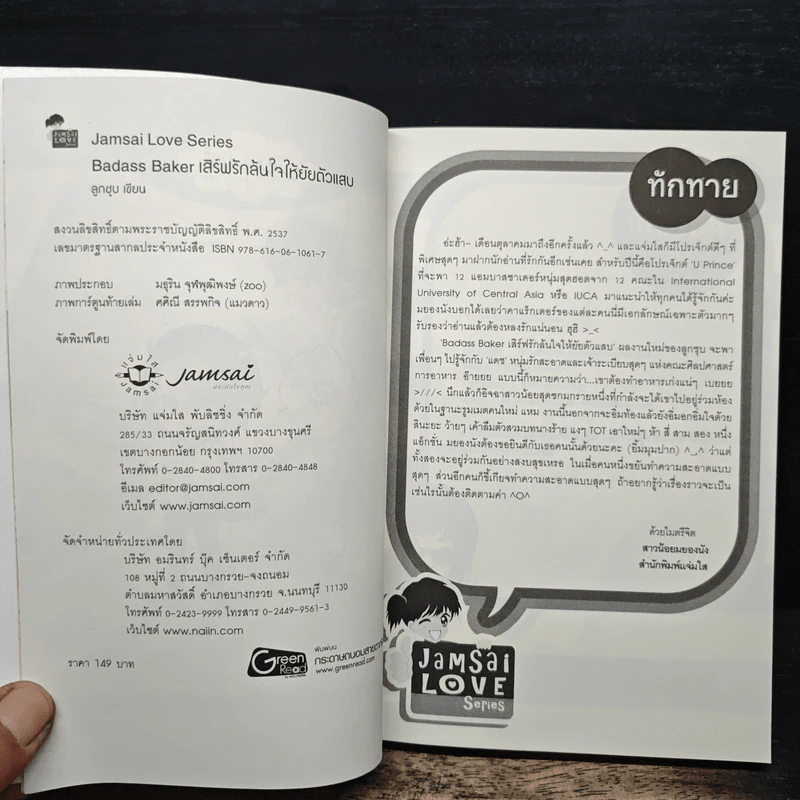 JAMSAI
LOVE
Jamsai Love Series
Badass Baker เสิร์ฟรักล้นใจให้ยัยตัวแสบ
ลูกชุบ เขียน
สงวนลิขสิทธิ์ตามพระราชบัญญัติลิขสิทธิ์ พ.ศ. 2537
เลขมาตรฐานสากลประจำหนังสือ ISBN 978-616-06-1061-7
ภาพประกอบ มธุริน จุฬพุฒิพงษ์ (zoo)
ภาพการ์ตูนท้ายเล่ม ศศิณี สรรพกิจ (แมวดาว)
จัดพิมพ์โดย
แจ่มใส
Jamsai
Jamsai
บริษัท แจ่มใส พับลิชชิ่ง จำกัด
285/33 ถนนจรัญสนิทวงศ์ แขวงบางขุนศรี
เขตบางกอกน้อย กรุงเทพฯ 10700
โทรศัพท์ 0-2840-4800 โทรสาร 0-2840-4848
อีเมล editor@jamsai.com
เว็บไซต์ www.jamsai.com
จัดจำหน่ายทั่วประเทศโดย
บริษัท อมรินทร์ บุ๊ค เซ็นเตอร์ จำกัด
108 หมู่ที่ 2 ถนนบางกรวย-จงถนอม
ตำบลมหาสวัสดิ์ อำเภอบางกรวย จ.นนทบุรี 11130
โทรศัพท์ 0-2423-9999 โทรสาร 0-2449-9561-3
เว็บไซต์ www.naiin.com
ราคา 149 บาท
Green
Read
พิมพ์บน
กระดาษถนอมสายตา
www.greenread.com
ทักทาย
อ่ะฮ้า~ เดือนตุลาคมมาถึงอีกครั้งแล้ว ^_^ และแจ่มใสก็มีโปรเจ็กต์ดีๆ ที่
พิเศษสุดๆ มาฝากนักอ่านที่รักกันอีกเช่นเคย สำหรับปีนี้คือโปรเจ็กต์ 'U Prince'
ที่จะพา 12 แอมบาสซาเดอร์หนุ่มสุดฮอตจาก 12 คณะใน International
University of Central Asia หรือ IUCA มาแนะนำให้ทุกคนได้รู้จักกันค่ะ
มยองนังบอกได้เลยว่าคาแร็กเตอร์ของแต่ละคนนี้มีเอกลักษณ์เฉพาะตัวมากๆ
รับรองว่าอ่านแล้วต้องหลงรักแน่นอน ฮุฮิ >_<
'Badass Baker เสิร์ฟรักล้นใจให้ยัยตัวแสบ' ผลงานใหม่ของลูกชุบ จะพา
เพื่อนๆ ไปรู้จักกับ 'แดซ' หนุ่มรักสะอาดและเจ้าระเบียบสุดๆ แห่งคณะศิลปศาสตร์
การอาหาร อ๊ายยย แบบนี้ก็หมายความว่า...เขาต้องทำอาหารเก่งแน่ๆ เบยยย
>///< นึกแล้วก็อิจฉาสาวน้อยสุดซกมกรายหนึ่งที่กำลังจะได้เข้าไปอยู่ร่วมห้อง
ด้วยในฐานะรูมเมตคนใหม่ แหม งานนี้นอกจากจะอิ่มท้องแล้วยังอิ่มอกอิ่มใจด้วย
สินะยะ ว้ายๆ เค้าลืมตัวสวมบทนางร้าย แงๆ TOT เอาใหม่ๆ ห้า สี่ สาม สอง หนึ่ง
แอ็กชั่น มยองนังต้องขอยินดีกับเธอคนนั้นด้วยนะคะ (ยิ้มมุมปาก) ^_^ ว่าแต่
ทั้งสองจะอยู่ร่วมกันอย่างสงบสุขเหรอ ในเมื่อคนหนึ่งขยันทำความสะอาดแบบ
สุดๆ ส่วนอีกคนก็ขี้เกียจทำความสะอาดแบบสุดๆ ถ้าอยากรู้ว่าเรื่องราวจะเป็น
เช่นไรนั้นต้องติดตามค่า ^O^
ด้วยไมตรีจิต
สาวน้อยมยองนัง
สำนักพิมพ์แจ่มใส
JAMSAI
LOVE
Series